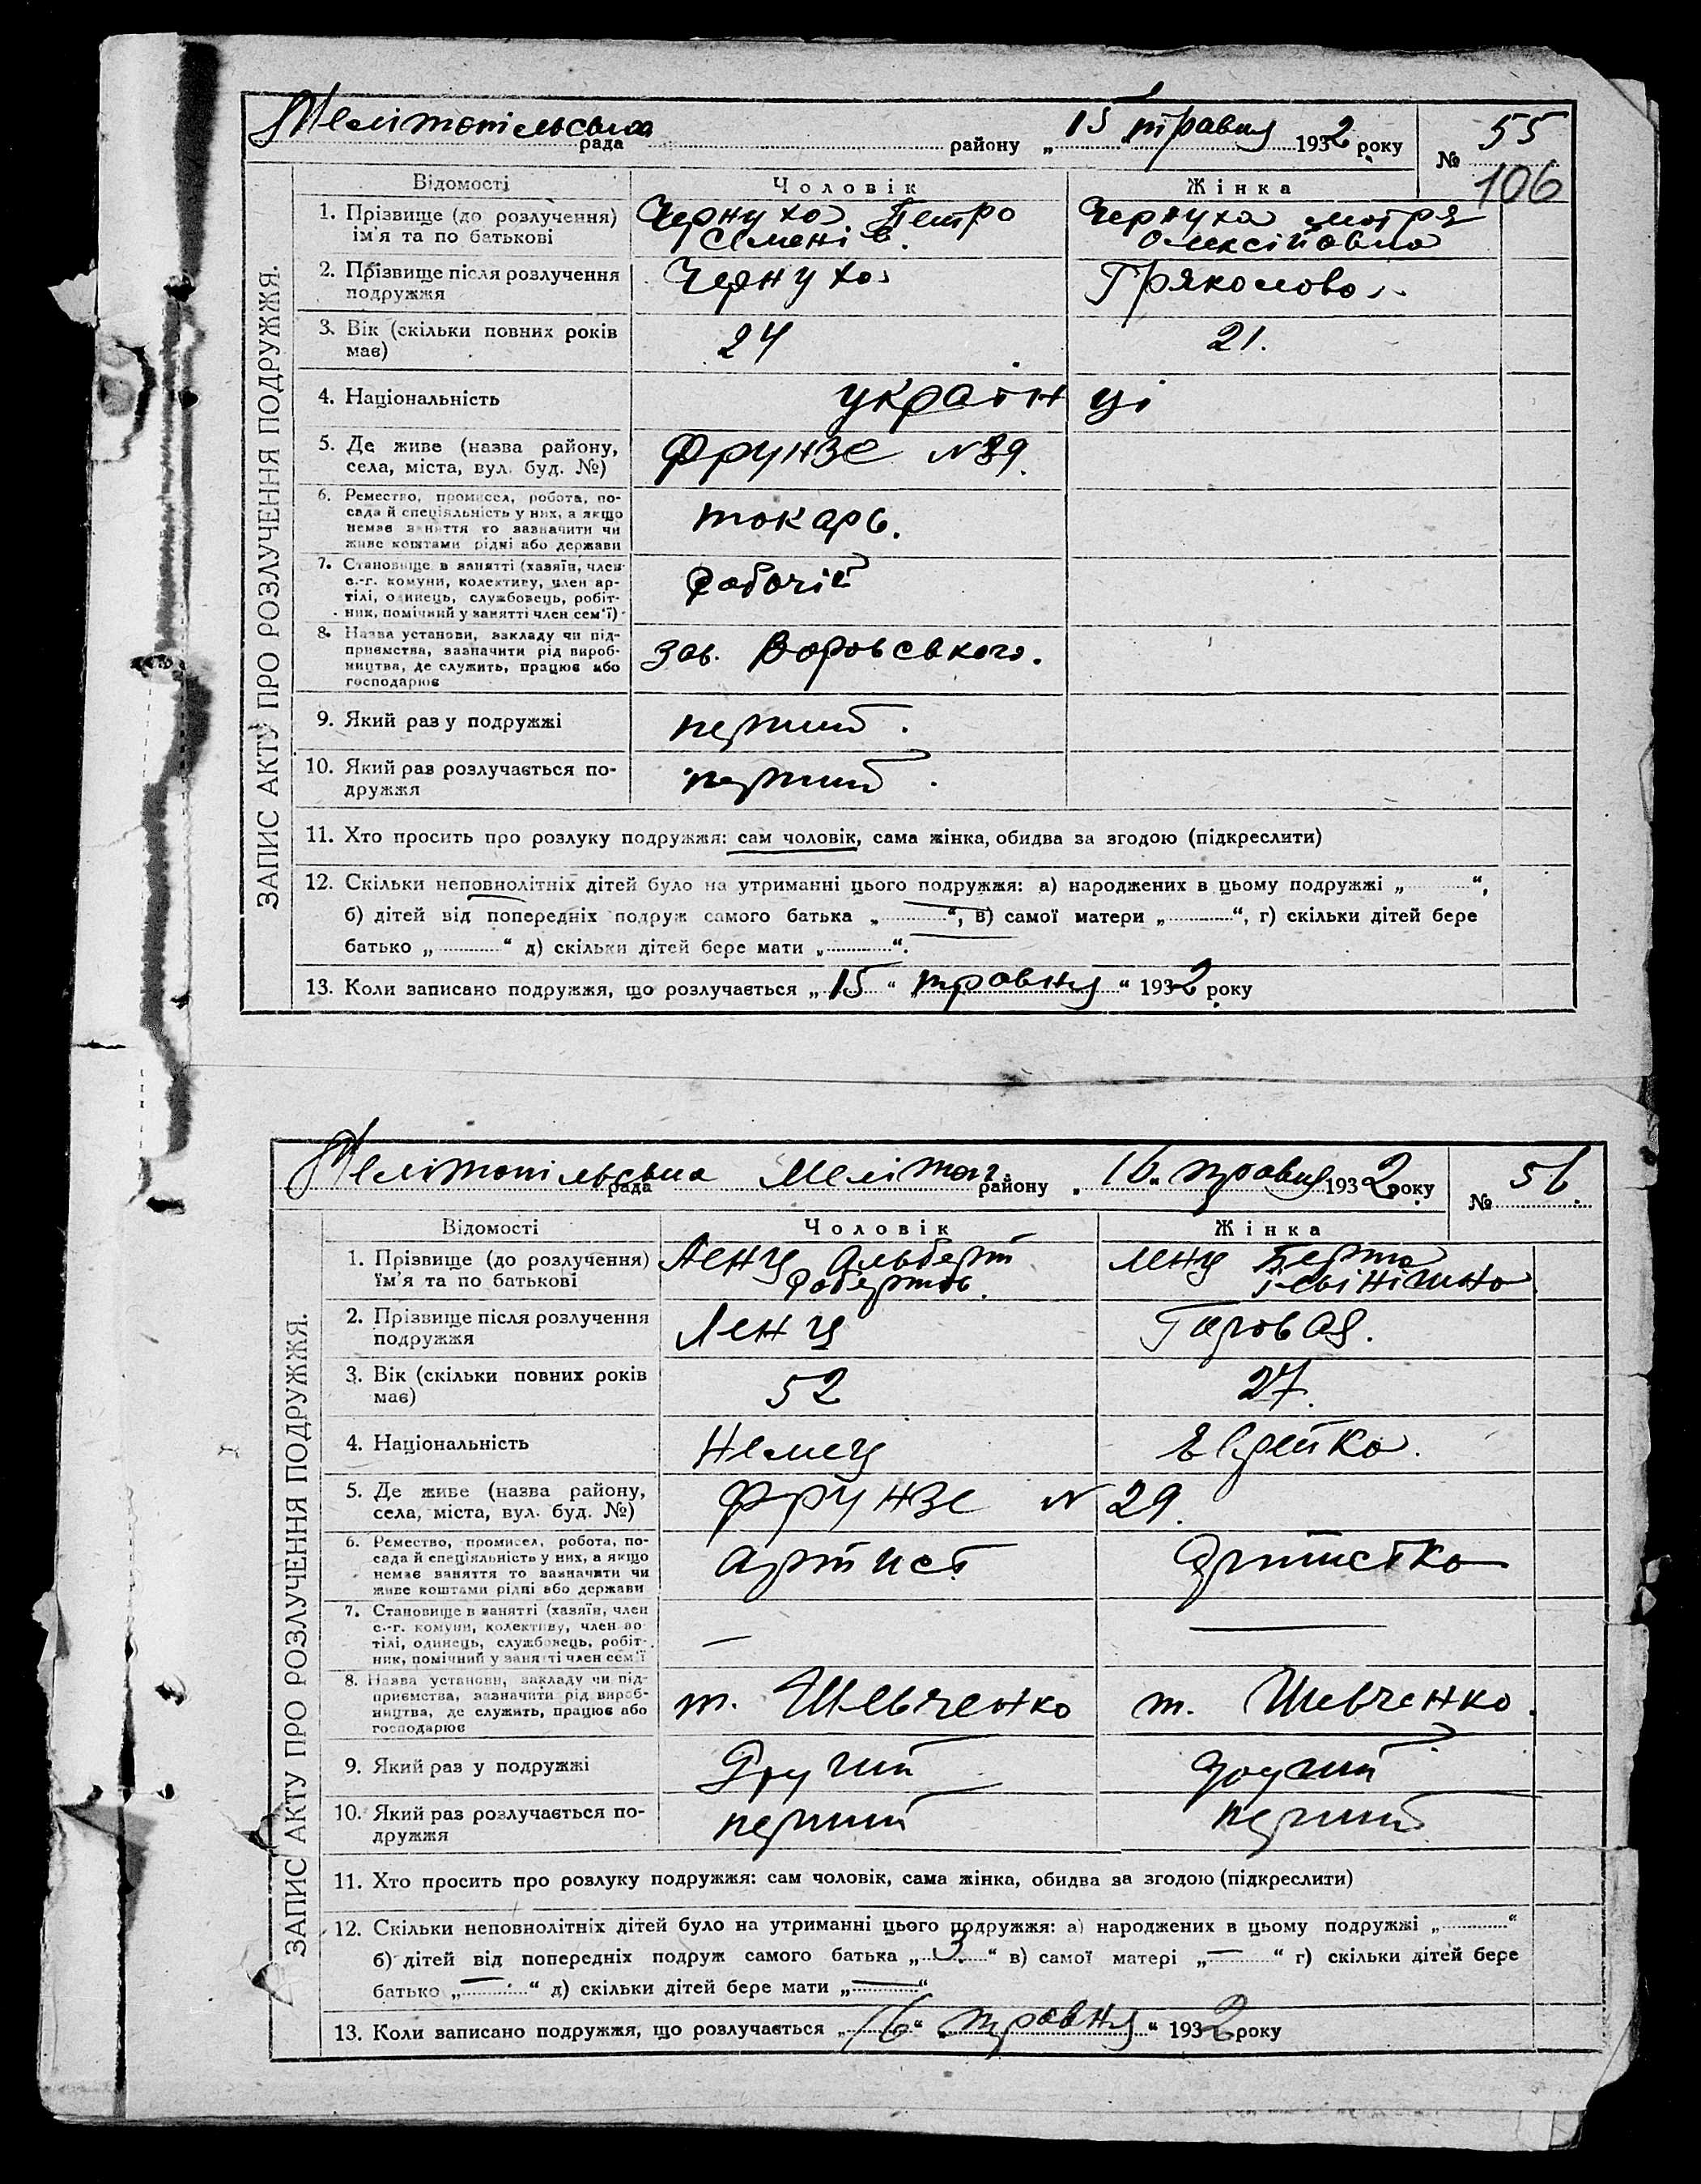 Мелітопільська рада району „15 травня 1932 року № 55
106
ЗАПИС АКТУ ПРО РОЗЛУЧЕННЯ ПОДРУЖЖЯ.
Відомості Чоловік Жінка
1. Прізвище (до розлучення) Чернуха Петро Чернуха Мотря
ім'я та по батькові Семенів. Олексіївна
2. Прізвище після розлучення Чернуха
подружжя
3. Вік (скільки повних років 24 21.
має)
4. Національність українці
5. Де живе (назва району, Фрунзе №89.
села, міста, вул. буд. №)
6. Ремество, промисел, робота, по-
сада й спеціяльність у них, а якщо токарь.
немає заняття то зазначити чи
живе коштами рідні або держави
7. Становище в занятті (хазяїн, член
с.-г. комуни, колективу, член ар- Робочій
тілі, одинець, службовець, робіт-
ник, помічний у занятті член сем'ї)
8. Назва установи, закладу чи під-
приємства, зазначити рід вироб- зав. Воровського.
ництва, де служить, працює або
господарює
9. Який раз у подружжі перший.
10. Який раз розлучається по- перший.
дружжя
11. Хто просить про розлуку подружжя: сам чоловік, сама жінка, обидва за згодою (підкреслити)
12. Скільки неповнолітніх дітей було на утриманні цього подружжя: а) народжених в цьому подружжі „ “,
б) дітей від попередніх подруж самого батька „ “, в) самої матери „ “, г) скільки дітей бере
батько „ “ д) скільки дітей бере мати „ “.
13. Коли записано подружжя, що розлучається „15“ „травня“ 1932 року
Мелітопільська рада Меліто району „16“ травня 1932 року № 56.
ЗАПИС АКТУ ПРО РОЗЛУЧЕННЯ ПОДРУЖЖЯ.
Відомості Чоловік Жінка
1. Прізвище (до розлучення) Ленц Альберт Ленц Берта
їм'я та по батькові Робертов.
2. Прізвище після розлучення Ленц Гаровая.
подружжя
3. Вік (скільки повних років 52 27.
має)
4. Національність Немец Еврейка.
5. Де живе (назва району, Фрунзе № 29.
села, міста, вул. буд. №)
6. Ремество, промисел, робота, по-
сада й спеціяльність у них, а якщо артист артистка
немає заняття то зазначити чи
живе коштами рідні або держави
7. Становище в занятті (хазяїн, член
с.-г. комуни, колективу, член ар- — —
тілі, одинець, службовець, робіт-
ник, помічний у занятті член сем'ї
8. Назва установи, закладу чи під-
приємства, зазначити рід вироб- т. Шевченко т. Шевченко.
ництва, де служить, працює або
господарює
9. Який раз у подружжі Другий другий
10. Який раз розлучається по- перший перший
дружжя
11. Хто просить про розлуку подружжя: сам чоловік, сама жінка, обидва за згодою (підкреслити)
12. Скільки неповнолітніх дітей було на утриманні цього подружжя: а) народжених в цьому подружжі „ “
б) дітей від попередніх подруж самого батька „3.“ в) самої матері „—“ г) скільки дітей бере
батько „—“ д) скільки дітей бере мати „—“
13. Коли записано подружжя, що розлучається „16“ „травня“ 1932 року